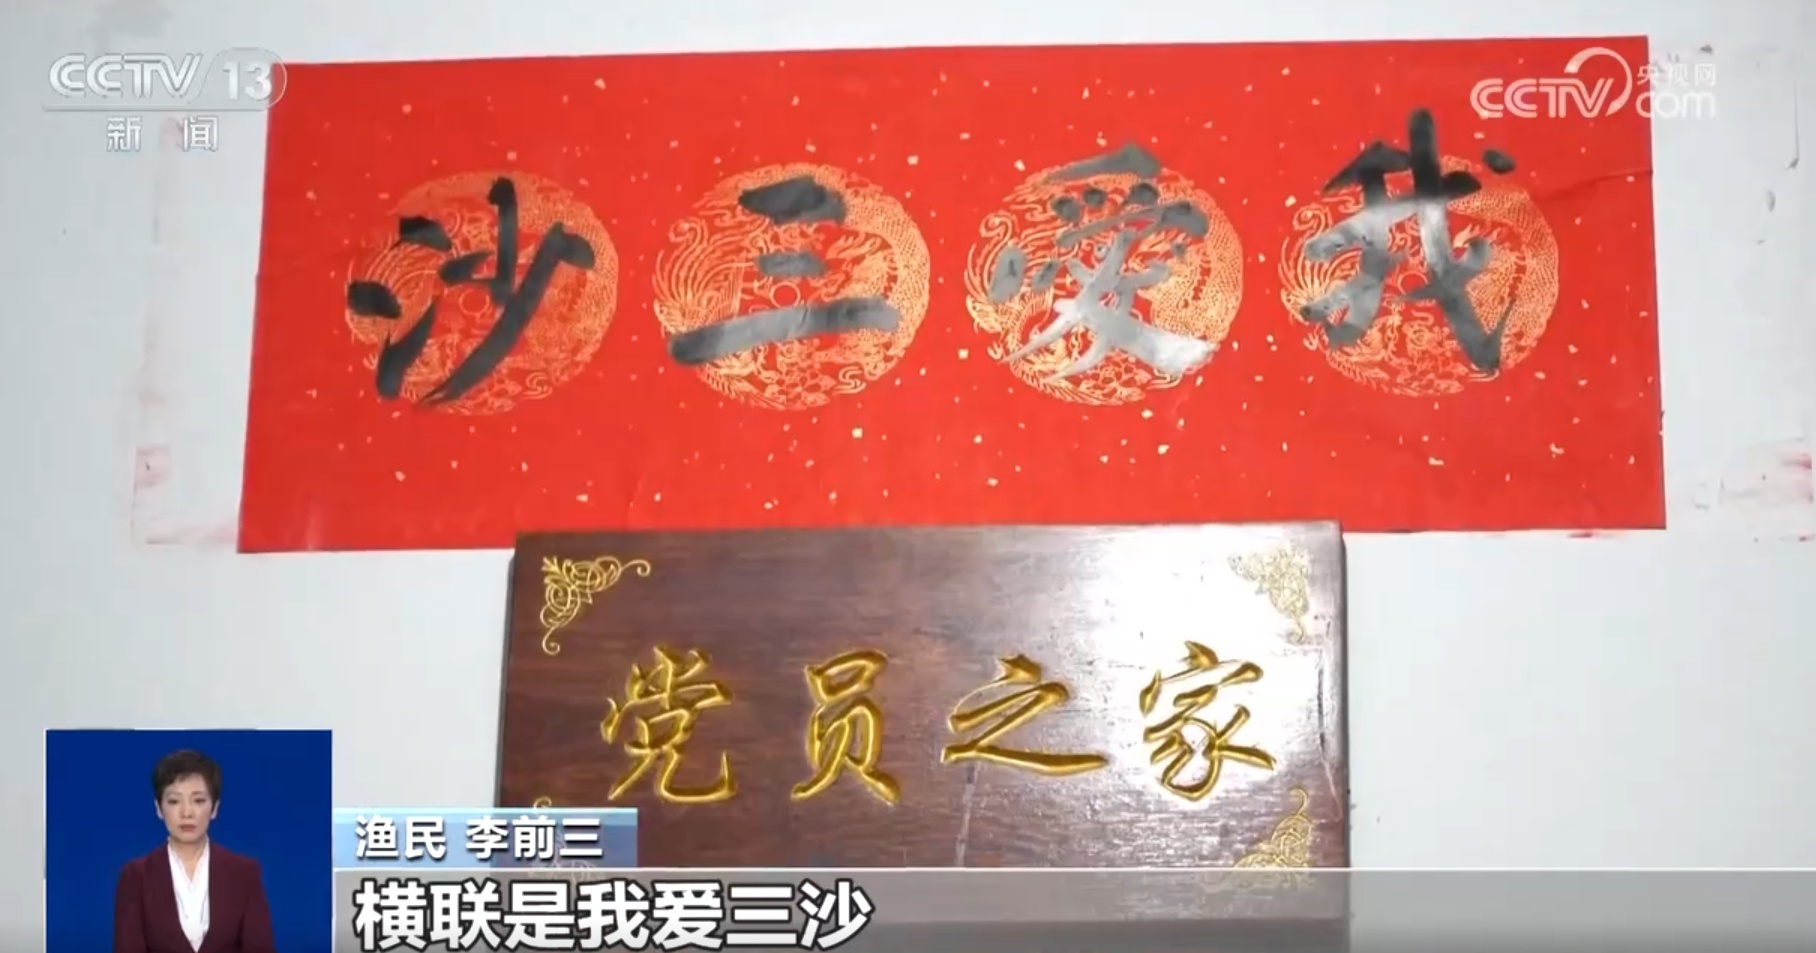 CCTV 13
新闻
央视网
CCTV.com
沙三爱我
党员之家
渔民 李前三
横联是我爱三沙